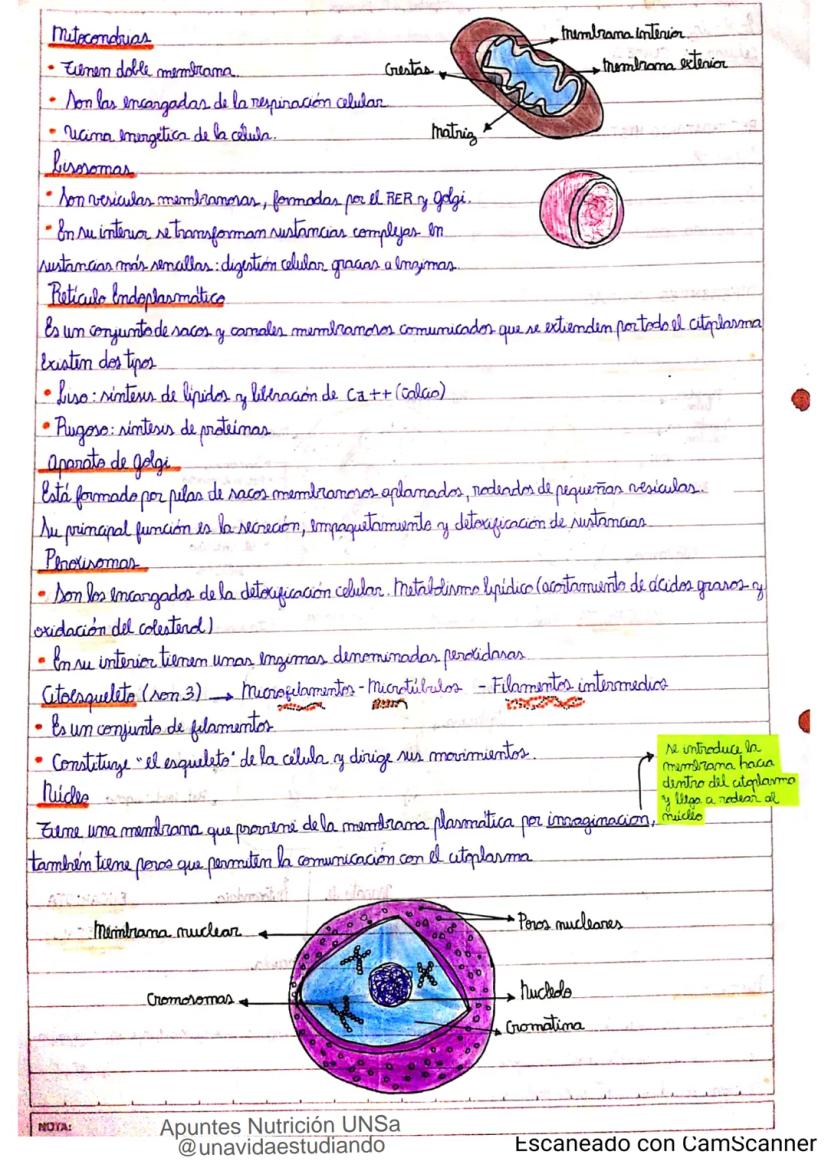 Mitocondrias
• Tienen doble membrana.
• Son las encargadas de la respiración celular
• Usina energética de la célula.
membrana interior
membrana exterior
Crestas
Matriz
Lisosomas
• Son vesículas membranosas, formadas por el RER y golgi.
• En su interior se transforman sustancias complejas en
sustancias más sencillas: digestión celular gracias a enzimas.
Retículo Endoplasmático
Es un conjunto de sacos y canales membranosos comunicados que se extienden por todo el citoplasma
Existen dos tipos
• Liso: síntesis de lípidos y liberación de Ca++ (calcio)
• Rugoso: síntesis de proteínas
aparato de golgi
Está formado por pilas de sacos membranosos aplanados, rodeados de pequeñas vesículas.
Su principal función es la secreción, empaquetamiento y detoxificación de sustancias
Peroxisomas
• Son los encargados de la detoxificación celular. Metabolismo lipídico (acortamiento de ácidos grasos y
oxidación del colesterol)
• En su interior tienen unas enzimas denominadas peroxidasas
Citoesqueleto (son 3) → Microfilamentos - Microtúbulos - Filamentos intermedios
• Es un conjunto de filamentos
• Constituye "el esqueleto" de la célula y dirige sus movimientos.
Núcleo
Tiene una membrana que proviene de la membrana plasmática por invaginación,
también tiene poros que permiten la comunicación con el citoplasma
se introduce la
membrana hacia
dentro del citoplasma
y llega a rodear al
núcleo
Membrana nuclear
Poros nucleares
Cromosomas
Nucleolo
Cromatina
NOTA:
Apuntes Nutrición UNSa
@unavidaestudiando
Escaneado con CamScanner